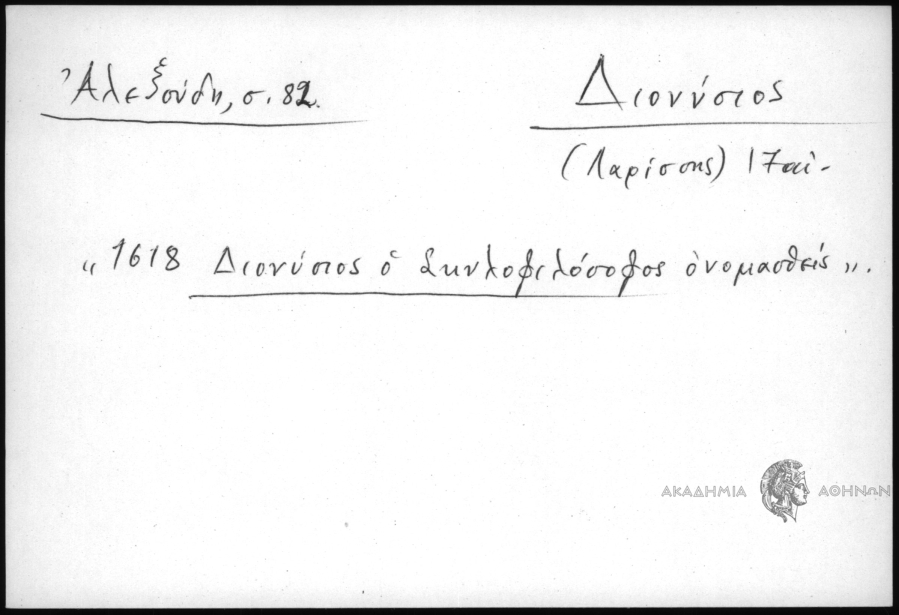 Ἀλεξούδη, σ. 82.
Διονύσιος
(Λαρίσσης) 17 αἰ.
„1618 Διονύσιος ὁ Σκυλοφιλόσοφος ὀνομασθείς".
ΑΚΑΔΗΜΙΑ ΑΘΗΝΩΝ